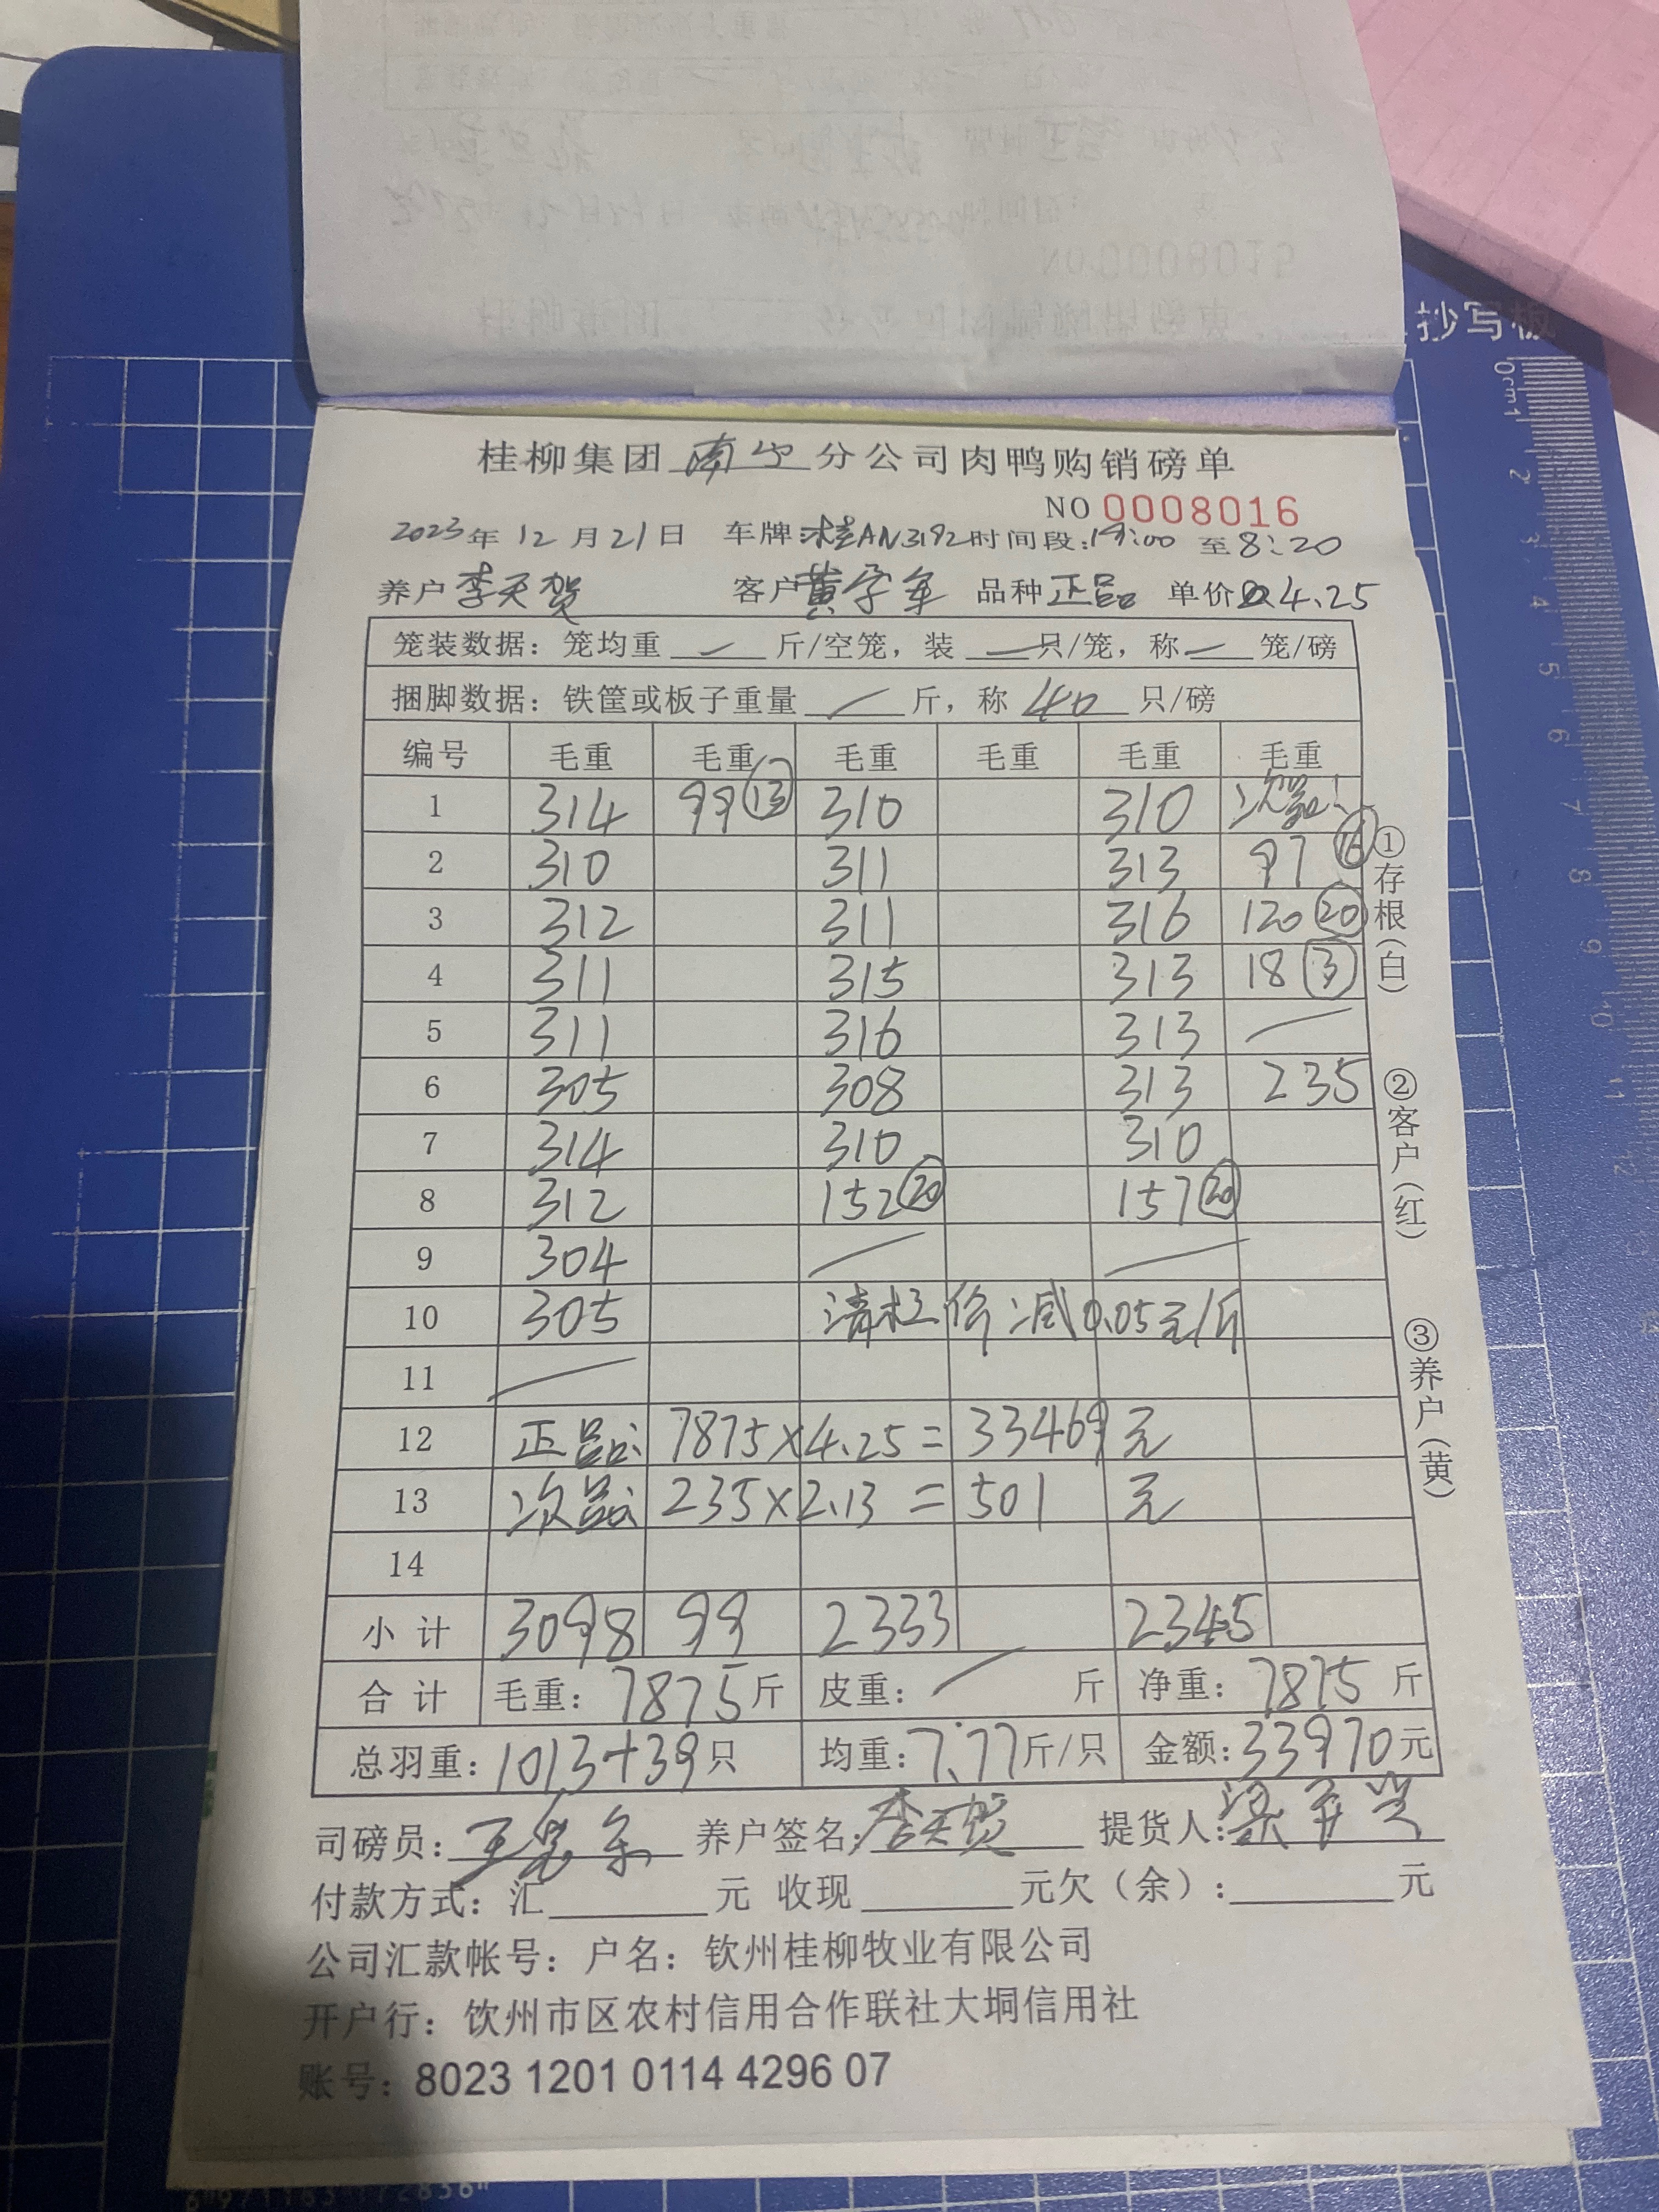 抄写板
桂柳集团 南宁 分公司肉鸭购销磅单
NO 0008016
2023年 12 月 21 日 车牌:桂AN3192 时间段:19:00 至 8:20
养户 李天贺 客户 黄学年 品种 正品 单价 4.25
笼装数据:笼均重 — 斤/空笼,装 — 只/笼,称 — 笼/磅
捆脚数据:铁筐或板子重量 — 斤,称 40 只/磅
编号 毛重 毛重 毛重 毛重 毛重 毛重
1 314 99 (13) 310 310 次品:
2 310 311 313 97 (16)
3 312 311 316 120 (20)
4 311 315 313 18 (3)
5 311 316 313 —
6 305 308 313 235
7 314 310 310
8 312 152 (20) 157 (20)
9 304 — —
10 305 清杠价减0.05元/斤
11 —
12 正品: 7875×4.25 = 33469 元
13 次品: 235×2.13 = 501 元
14
小计 3098 99 2333 2345
合计 毛重: 7875 斤 皮重: — 斤 净重: 7875 斤
总羽重: 1013+39 只 均重: 7.77 斤/只 金额: 33970 元
司磅员: 养户签名: 李天贺 提货人:
付款方式: 汇 元 收现 元欠(余): 元
公司汇款帐号: 户名: 钦州桂柳牧业有限公司
开户行: 钦州市区农村信用合作联社大垌信用社
账号: 8023 1201 0114 4296 07
①存根(白)
②客户(红)
③养户(黄)
0cm1 2 3 4 5 6 7 8 9 10 11 12